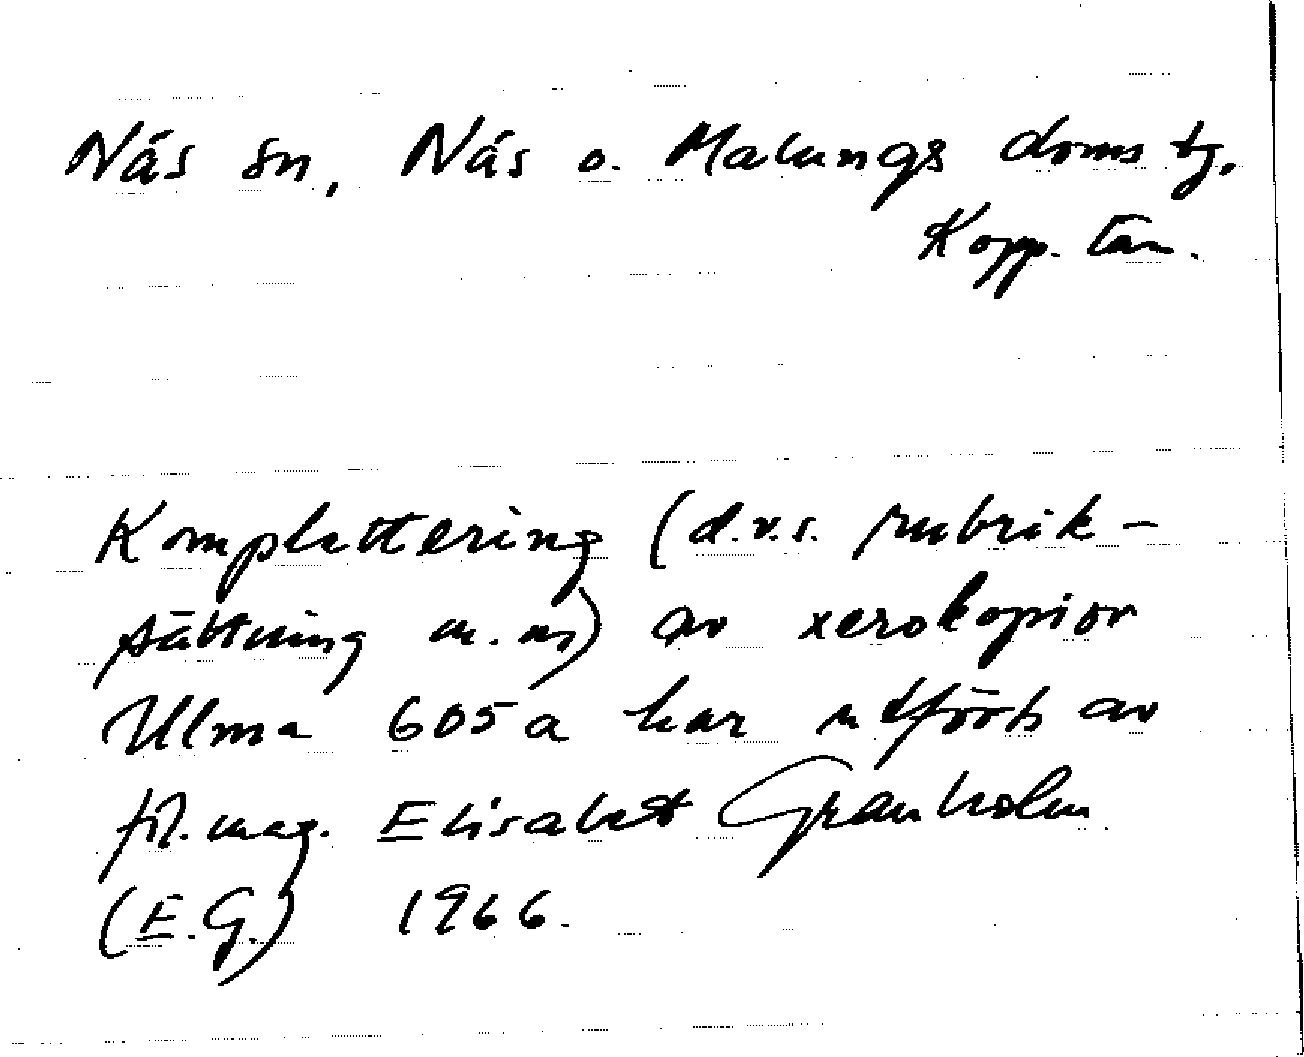 Nås sn, Nås o. Malungs doms tg.
Kopp. län.
Komplettering (d.v.s. rubrik-
sättning m.m) av xerokopior
Ulma 605a har utförts av
fil.mag. Elisabet Granholm
(E.G.) 1966.